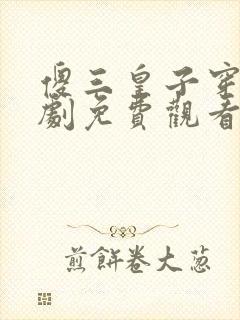 傻三皇子穿
劇免費觀看
煎餅卷大葱